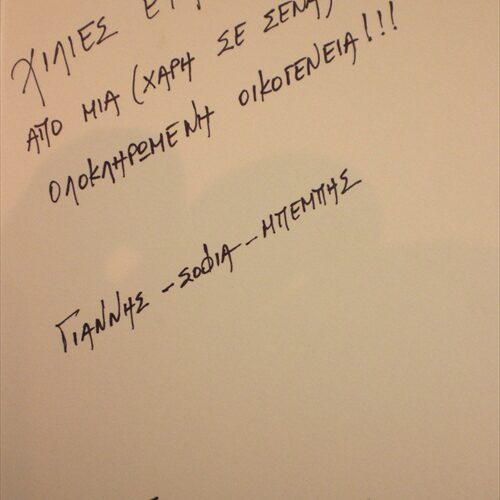 ΧΙΛΙΕΣ
ΑΠΟ ΜΙΑ (ΧΑΡΗ ΣΕ ΣΕΝΑ)
ΟΛΟΚΛΗΡΩΜΕΝΗ ΟΙΚΟΓΕΝΕΙΑ!!!
ΓΙΑΝΝΗΣ - ΣΟΦΙΑ - ΜΠΕΜΠΗΣ